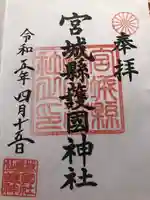 奉拝
宮城縣護國神社
令和五年四月十五日